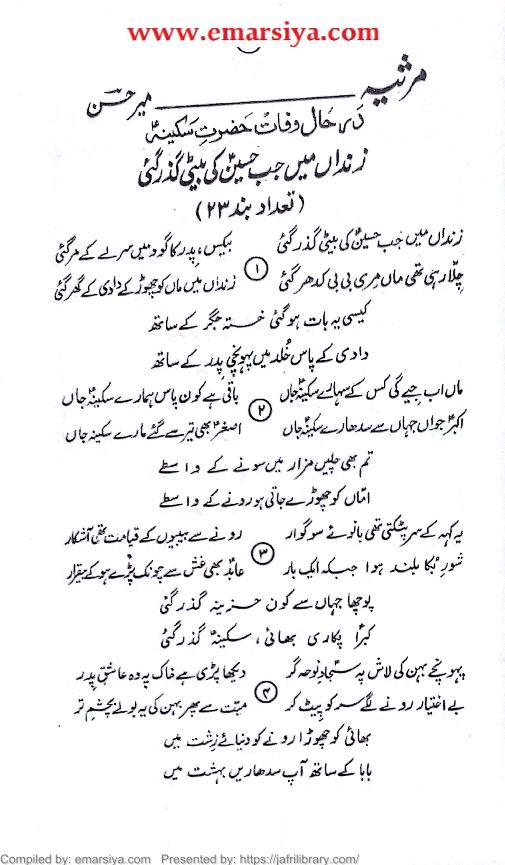 www.emarsiya.com
مرثیہ ________ میر حسن
در حال وفات حضرت سکینہؑ
زنداں میں جب حسینؑ کی بیٹی گذر گئی
(تعداد بند ۲۳)
زنداں میں جب حسینؑ کی بیٹی گذر گئی بیکس، پدر کا گود میں سر لے کے مر گئی
۱
چلّا رہی تھی ماں مری بی بی کدھر گئی زنداں میں ماں کو چھوڑ کے دادی کے گھر گئی
کیسی یہ بات ہو گئی خستہ جگر کے ساتھ
دادی کے پاس خُلد میں پہونچی پدر کے ساتھ
ماں اب جیے گی کس کے سہارے سکینہؑ جاں باقی ہے کون پاس ہمارے سکینہؑ جاں
۲
اکبرؑ جواں جہاں سے سدھارے سکینہؑ جاں اصغرؑ بھی تیر سے گئے مارے سکینہ جاں
تم بھی چلیں مزار میں سونے کے واسطے
امّاں کو چھوڑے جاتی ہو رونے کے واسطے
یہ کہہ کے سر پٹکتی تھی بانوئے سوگوار رونے سے بیبیوں کے قیامت تھی آشکار
۳
شورِ بُکا بلند ہوا جبکہ ایک بار عابدؑ بھی غش سے چونک پڑے ہو کے بیقرار
پوچھا جہاں سے کون حزینہ گذر گئی
کبراؑ پکاری بھائی، سکینہؑ گذر گئی
پہونچے بہن کی لاش پہ سجادؑ نوحہ گر دیکھا پڑی ہے خاک پہ وہ عاشقِ پدر
۴
بے اختیار رونے لگے سر کو پیٹ کر میّت سے پھر بہن کی یہ بولے بچشمِ تر
بھائی کو چھوڑا رونے کو دنیائے زِشت میں
بابا کے ساتھ آپ سدھاریں بہشت میں
Compiled by: emarsiya.com Presented by: https://jafrilibrary.com/